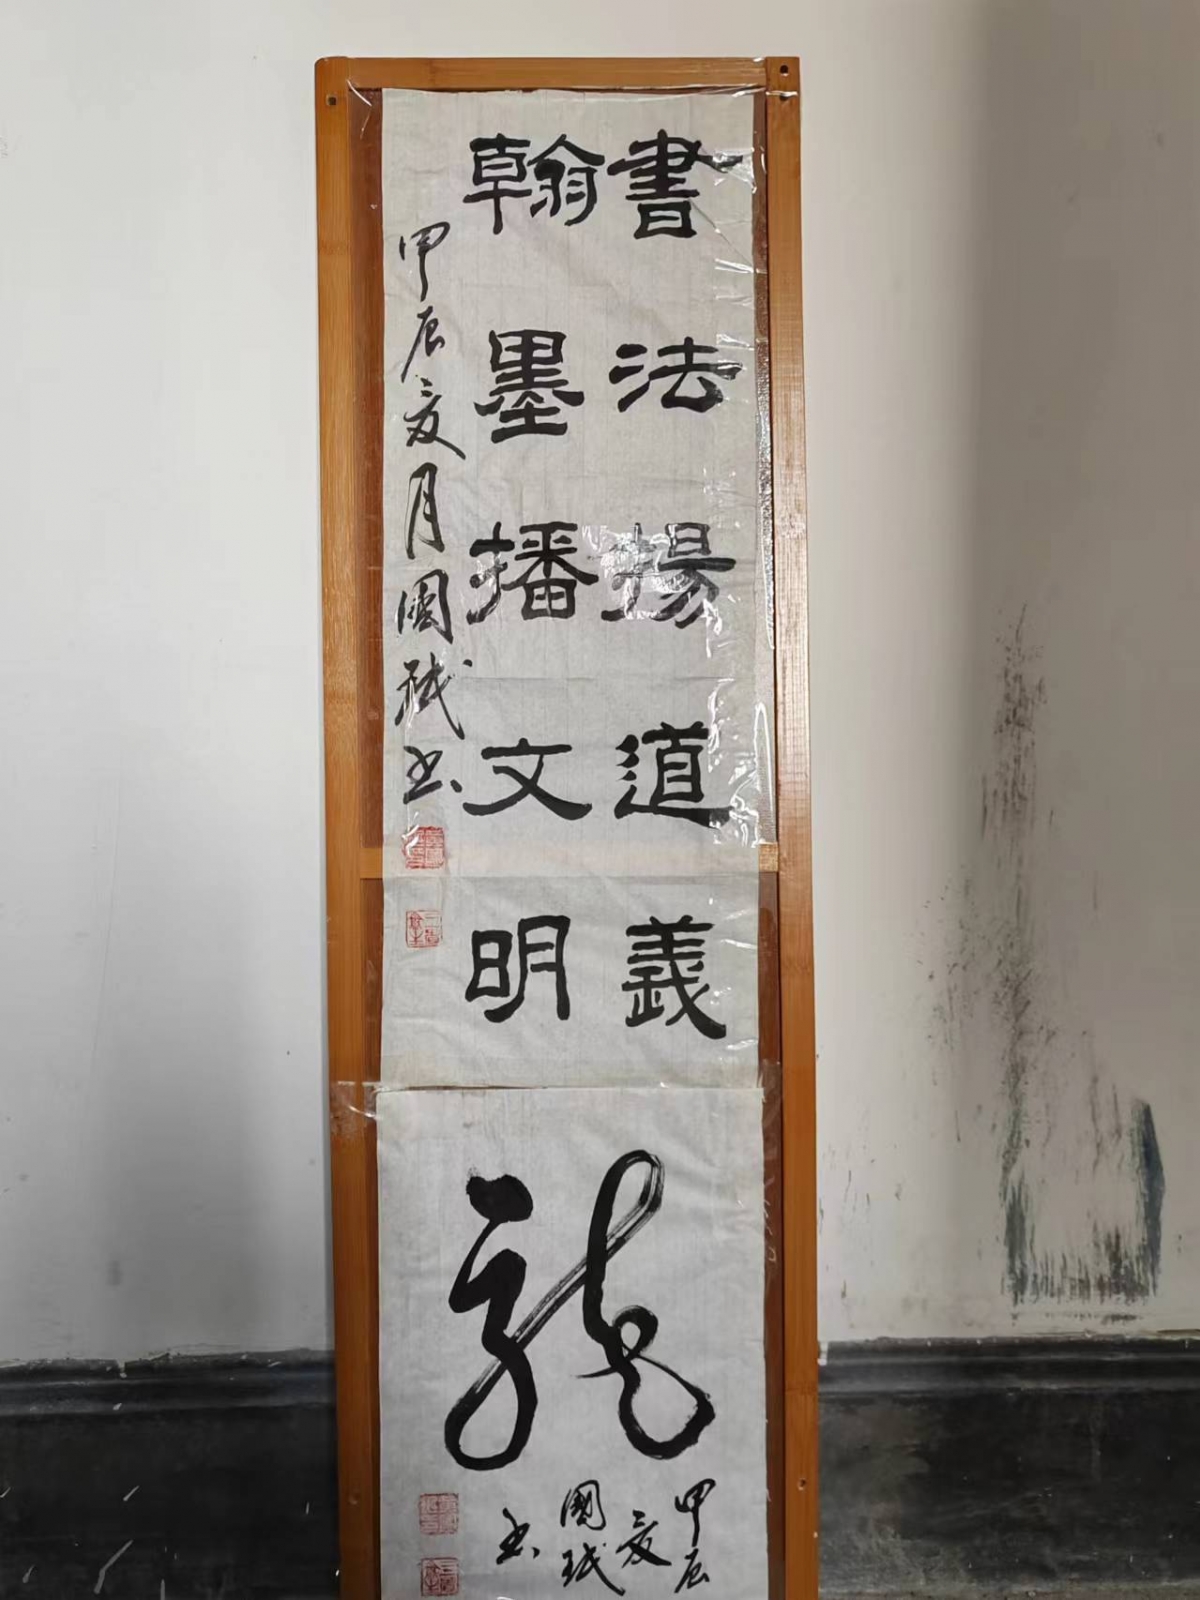 書法揚道義
翰墨播文明
甲辰夏月國书
龍
甲辰
夏
國
书